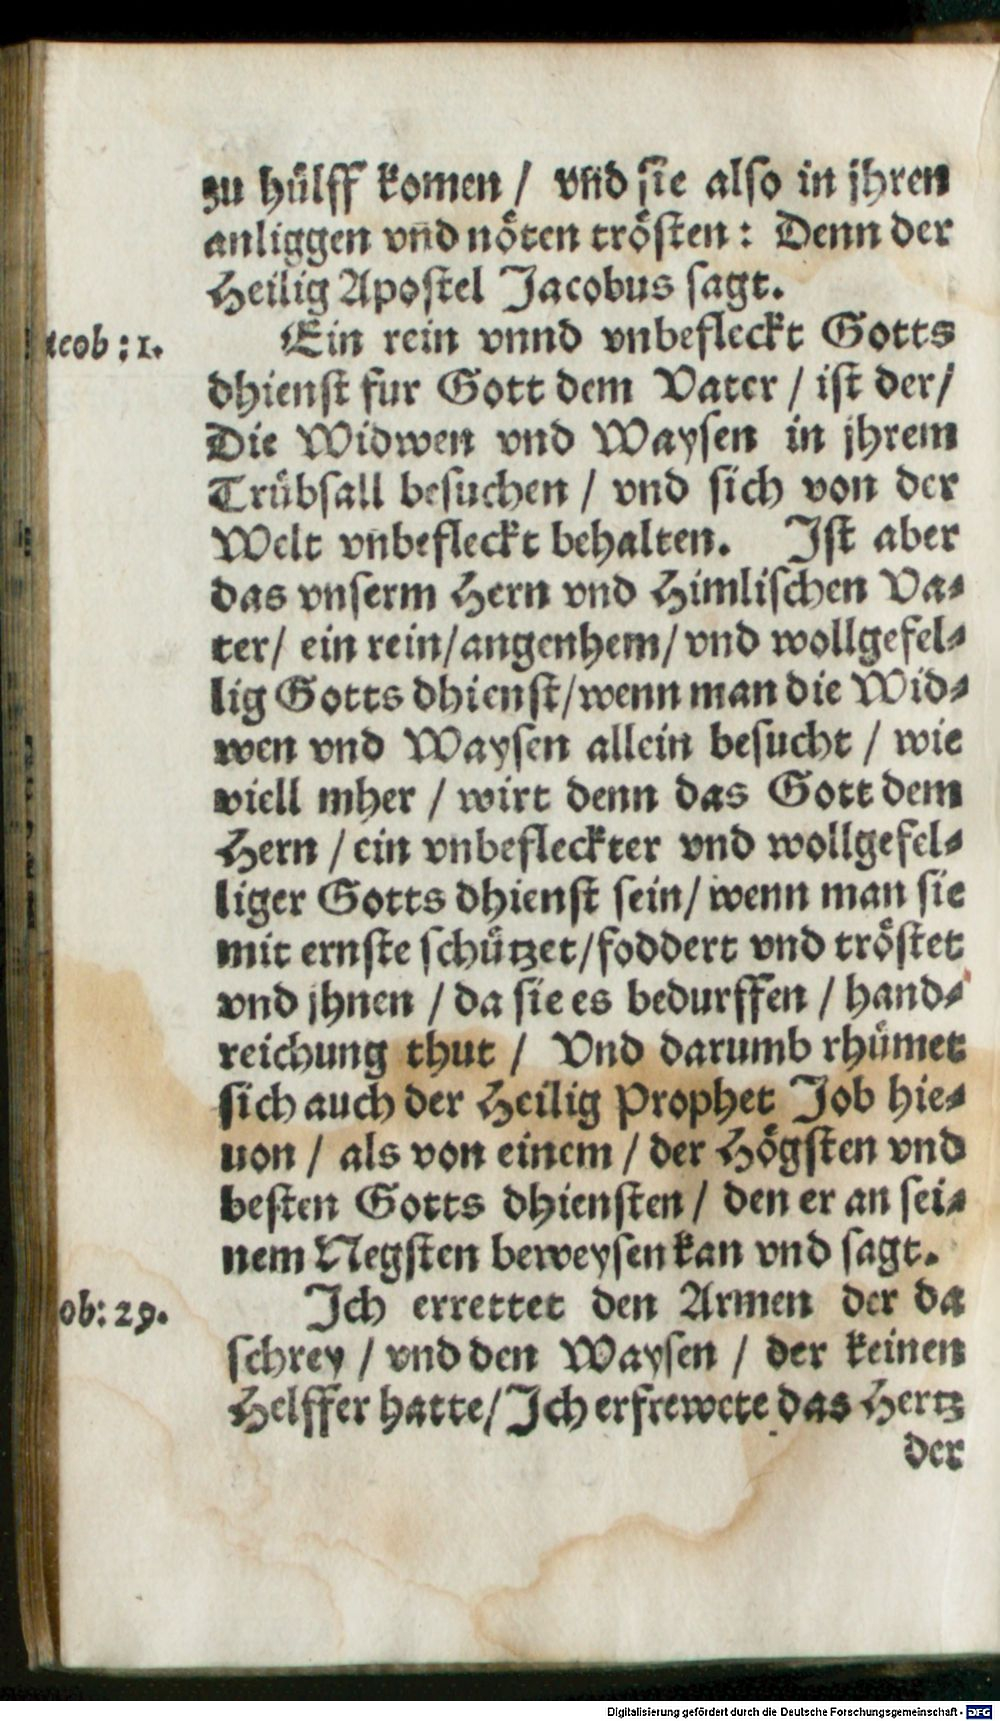 zu hülff komen / vn̄d sie also in jhren
anliggen vn̄d nöten trösten: Denn der
Heilig Apostel Jacobus sagt.
acob: 1.
Ein rein vnnd vnbefleckt Gotts
dhienst fur Gott dem Vater / ist der/
Die Widwen vnd Waysen in jhrem
Trübsall besuchen / vnd sich von der
Welt vnbefleckt behalten. Ist aber
das vnserm Hern vnd Himlischen Va-
ter/ ein rein/angenhem/ vnd wollgefel-
lig Gotts dhienst/wenn man die Wid-
wen vnd Waysen allein besucht / wie
viell mher / wirt denn das Gott dem
Hern / ein vnbefleckter vnd wollgefel-
liger Gotts dhienst sein/ wenn man sie
mit ernste schützet/foddert vnd tröstet
vnd jhnen / da sie es bedurffen / hand-
reichung thut / Vnd darumb rhümet
sich auch der Heilig Prophet Job hie-
uon / als von einem / der Högsten vnd
besten Gotts dhiensten / den er an sei-
nem Negsten beweysen kan vnd sagt.
ob: 29.
Ich errettet den Armen der da
schrey / vnd den Waysen / der keinen
Helffer hatte/ Ich erfrewete das Hertz
der
Digitalisierung gefördert durch die Deutsche Forschungsgemeinschaft - DFG